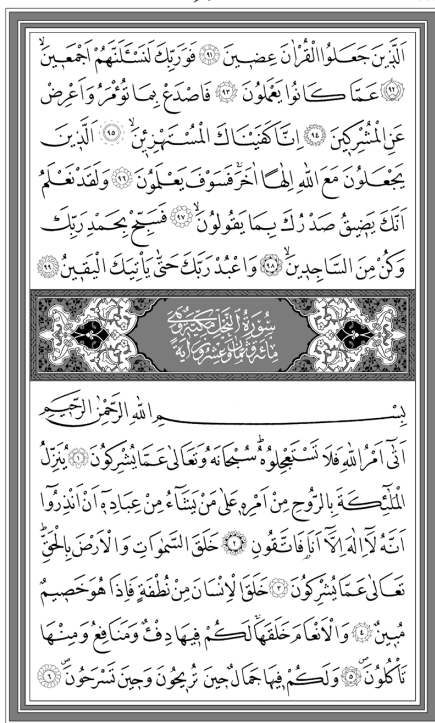 اَلَّذ۪ينَ جَعَلُوا الْقُرْاٰنَ عِض۪ينَ ﴿٩١﴾ فَوَرَبِّكَ لَنَسْـَٔلَنَّهُمْ اَجْمَع۪ينَۙ
﴿٩٢﴾ عَمَّا كَانُوا يَعْمَلُونَ ﴿٩٣﴾ فَاصْدَعْ بِمَا تُؤْمَرُ وَاَعْرِضْ
عَنِ الْمُشْرِك۪ينَ ﴿٩٤﴾ اِنَّا كَفَيْنَاكَ الْمُسْتَهْزِء۪ينَۙ ﴿٩٥﴾ اَلَّذ۪ينَ
يَجْعَلُونَ مَعَ اللّٰهِ اِلٰهًا اٰخَرَۚ فَسَوْفَ يَعْلَمُونَ ﴿٩٦﴾ وَلَقَدْ نَعْلَمُ
اَنَّكَ يَض۪يقُ صَدْرُكَ بِمَا يَقُولُونَۙ ﴿٩٧﴾ فَسَبِّحْ بِحَمْدِ رَبِّكَ
وَكُنْ مِنَ السَّاجِد۪ينَۙ ﴿٩٨﴾ وَاعْبُدْ رَبَّكَ حَتّٰى يَأْتِيَكَ الْيَق۪ينُ ﴿٩٩﴾
سُورَةُ النَّحْلِ مَكِّيَّةٌ وَهِيَ
مِائَةٌ وَثَمَانٍ وَعِشْرُونَ اٰيَةً
بِسْمِ اللّٰهِ الرَّحْمٰنِ الرَّح۪يمِ
اَتٰٓى اَمْرُ اللّٰهِ فَلَا تَسْتَعْجِلُوهُۜ سُبْحَانَهُ وَتَعَالٰى عَمَّا يُشْرِكُونَ ﴿١﴾ يُنَزِّلُ
الْمَلٰٓئِكَةَ بِالرُّوحِ مِنْ اَمْرِه۪ عَلٰى مَنْ يَشَٓاءُ مِنْ عِبَادِه۪ٓ اَنْ اَنْذِرُٓوا
اَنَّهُ لَٓا اِلٰهَ اِلَّٓا اَنَا۬ فَاتَّقُونِ ﴿٢﴾ خَلَقَ السَّمٰوَاتِ وَالْاَرْضَ بِالْحَقِّۜ
تَعَالٰى عَمَّا يُشْرِكُونَ ﴿٣﴾ خَلَقَ الْاِنْسَانَ مِنْ نُطْفَةٍ فَاِذَا هُوَ خَص۪يمٌ
مُب۪ينٌ ﴿٤﴾ وَالْاَنْعَامَ خَلَقَهَاۚ لَكُمْ ف۪يهَا دِفْءٌ وَمَنَافِعُ وَمِنْهَا
تَأْكُلُونَۖ ﴿٥﴾ وَلَكُمْ ف۪يهَا جَمَالٌ ح۪ينَ تُر۪يحُونَ وَح۪ينَ تَسْرَحُونَۖ ﴿٦﴾